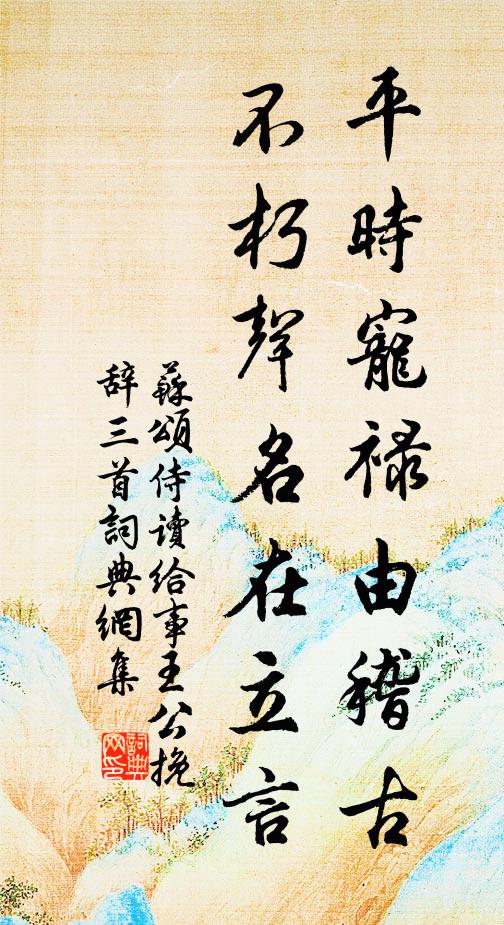 平時寵祿由稽古
不朽聲名在立言
蘇頌侍讀給事王公挽
辭三首詞典網集
詞典網印